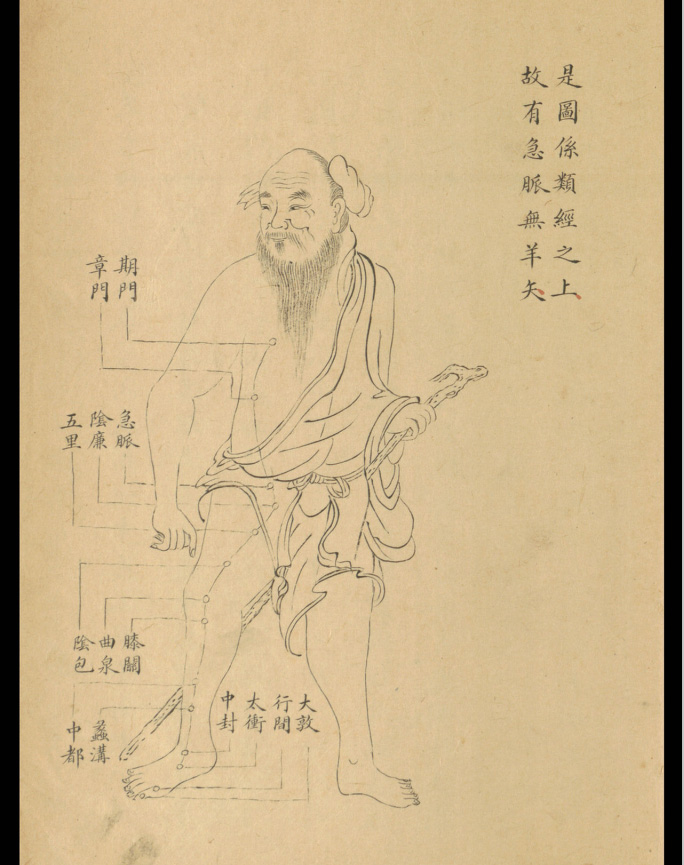 是圖係類經之上
故有急脈無羊矢
期門
章門
急脈
陰廉
五里
膝關
曲泉
陰包
蠡溝
中都
大敦
行間
太衝
中封